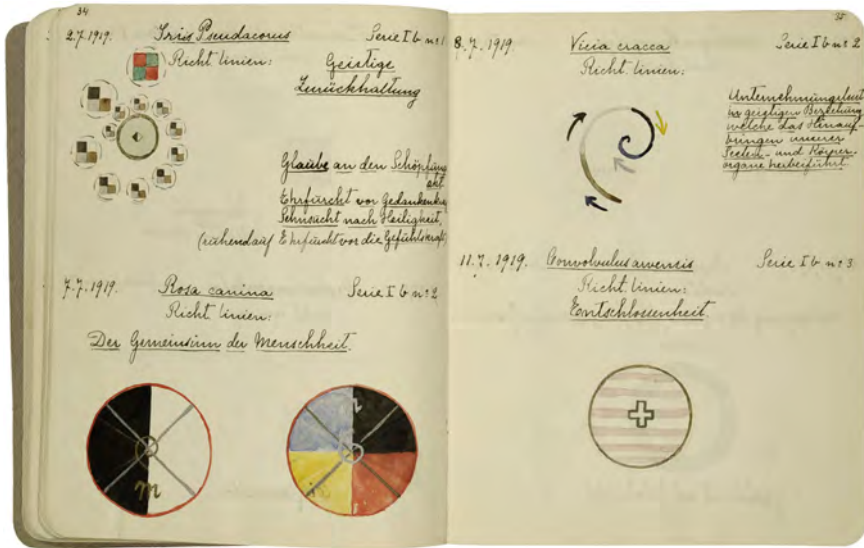 34
2.7.1919. Iris Pseudacorus Serie I b nº 1
Richt linien: Geistige
Zurückhaltung
Glaube an den Schöpfung
akt
Ehrfurcht vor Gedankenkra
Sehnsucht nach Heiligkeit,
(ruhend auf Ehrfurcht vor die Gefühlskraft)
7.7.1919. Rosa canina Serie I b nº 2
Richt linien:
Der Gemeinsinn der Menschheit.
m
35
8.7.1919. Vicia cracca Serie I b nº 2
Richt. linien:
Unternehmungslust
in geistigen Beziehung
welche das Hinauf-
bringen unserer
Seelen- und Körper-
organe herbeiführt.
11.7.1919. Convolvulus arvensis Serie I b nº 3
Richt. linien:
Entschlossenheit.